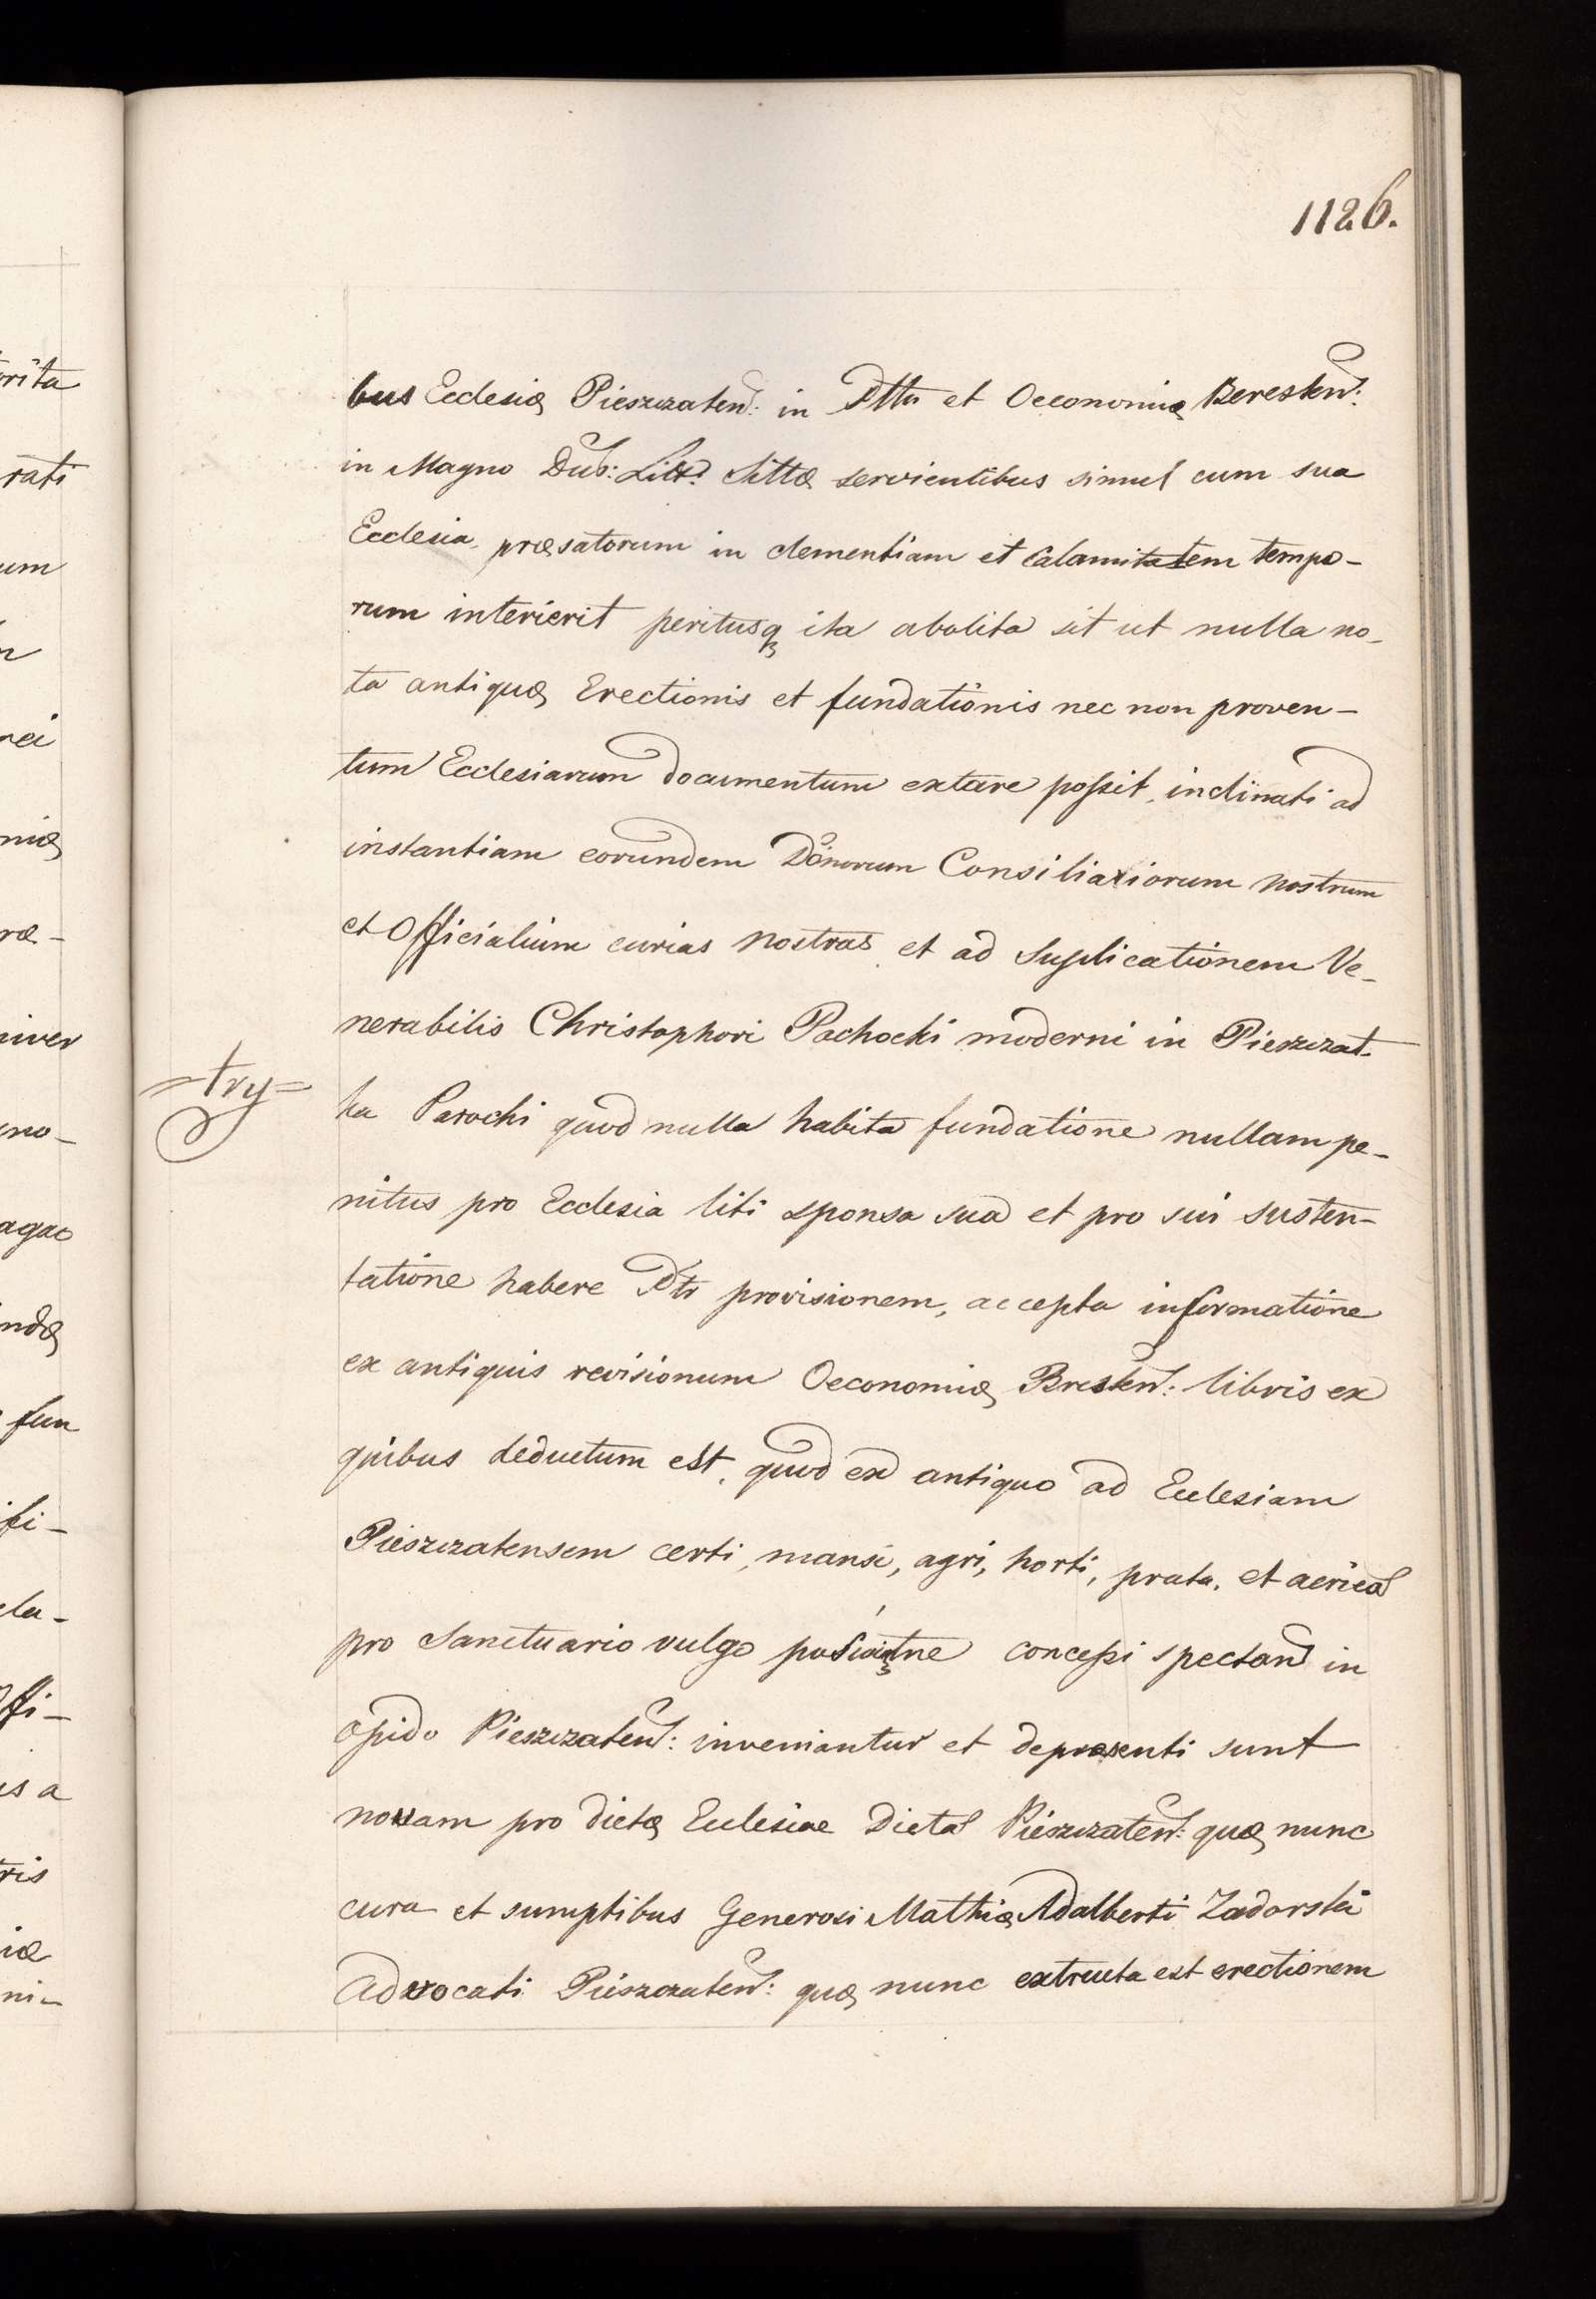 1126.
bus Ecclesiæ Pieszczaten: in Pttu et Oeconomiæ Beresten:
in Magno Duc: Litt: Sittæ servientibus simul cum sua
Ecclesia præsatorum in clementiam et Calamitatem tempo-
rum interierit peritusq ita abolita sit ut nulla no-
ta antiquæ Erectionis et fundationis nec non proven-
tum Ecclesiarum documentum extare possit, inclinati ad
instantiam eorundem Dönorum Consiliariorum nostrum
et Officialium curias nostras et ad Suplicationem Ve-
nerabilis Christophori Pachocki moderni in Pieszczat-
=try=
ka Parochi quod nulla habita fundatione nullam pe-
nitus pro Ecclesia liti sponsa sua et pro sui susten-
tatione habere Ptr provisionem, accepta informatione
ex antiquis revisionum Oeconomiæ Bresten: libris ex
quibus deductum est, quod ex antiquo ad Ecclesiam
Pieszczatensem certi, mansi, agri, horti, prata, et aereas
pro Sanctuario vulgo concessi spectan in
opido Pieszczaten: inveniantur et depraesenti sunt
novam pro dictæ Ecclesiae Dictæ Pieszczaten: quæ nunc
cura et sumptibus Generosi Mathiæ Adalberti Zadorski
advocati Pieszczaten: quæ nunc extructa est erectionem
rita
rati
um
nei
niæ
ræ-
niver
gno-
agao
ndæ
fun
ifi-
cla-
ffi-
is a
ris
iæ
ni-